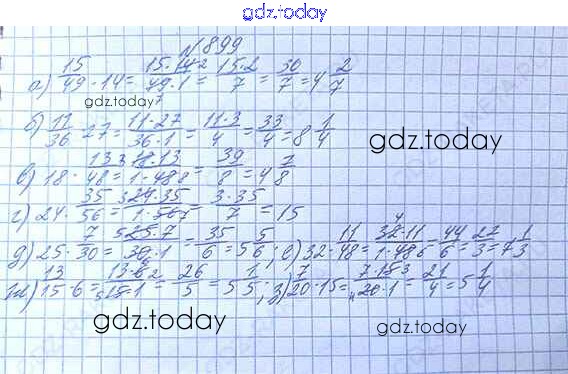 gdz.today
№899
а) 15/49 · 14 = 15·14 2/49·1 7 = 15·2/7 = 30/7 = 4 2/7
gdz.today
б) 11/36 · 27 = 11·27/36·1 = 11·3/4 = 33/4 = 8 1/4
gdz.today
в) 18 · 13/48 = 3 18·13/1·48 8 = 39/8 = 4 7/8
г) 24 · 35/56 = 3 24·35/1·56 7 = 3·35/7 = 15
д) 25 · 7/30 = 5 25·7/30·1 6 = 35/6 = 5 5/6; е) 32 · 11/48 = 4 32·11/1·48 6 = 44/6 = 22/3 = 7 1/3
ж) 13/15 · 6 = 13·6 2/5 15·1 = 26/5 = 5 1/5; з) 7/20 · 15 = 7·15 3/4 20·1 = 21/4 = 5 1/4
gdz.today
gdz.today